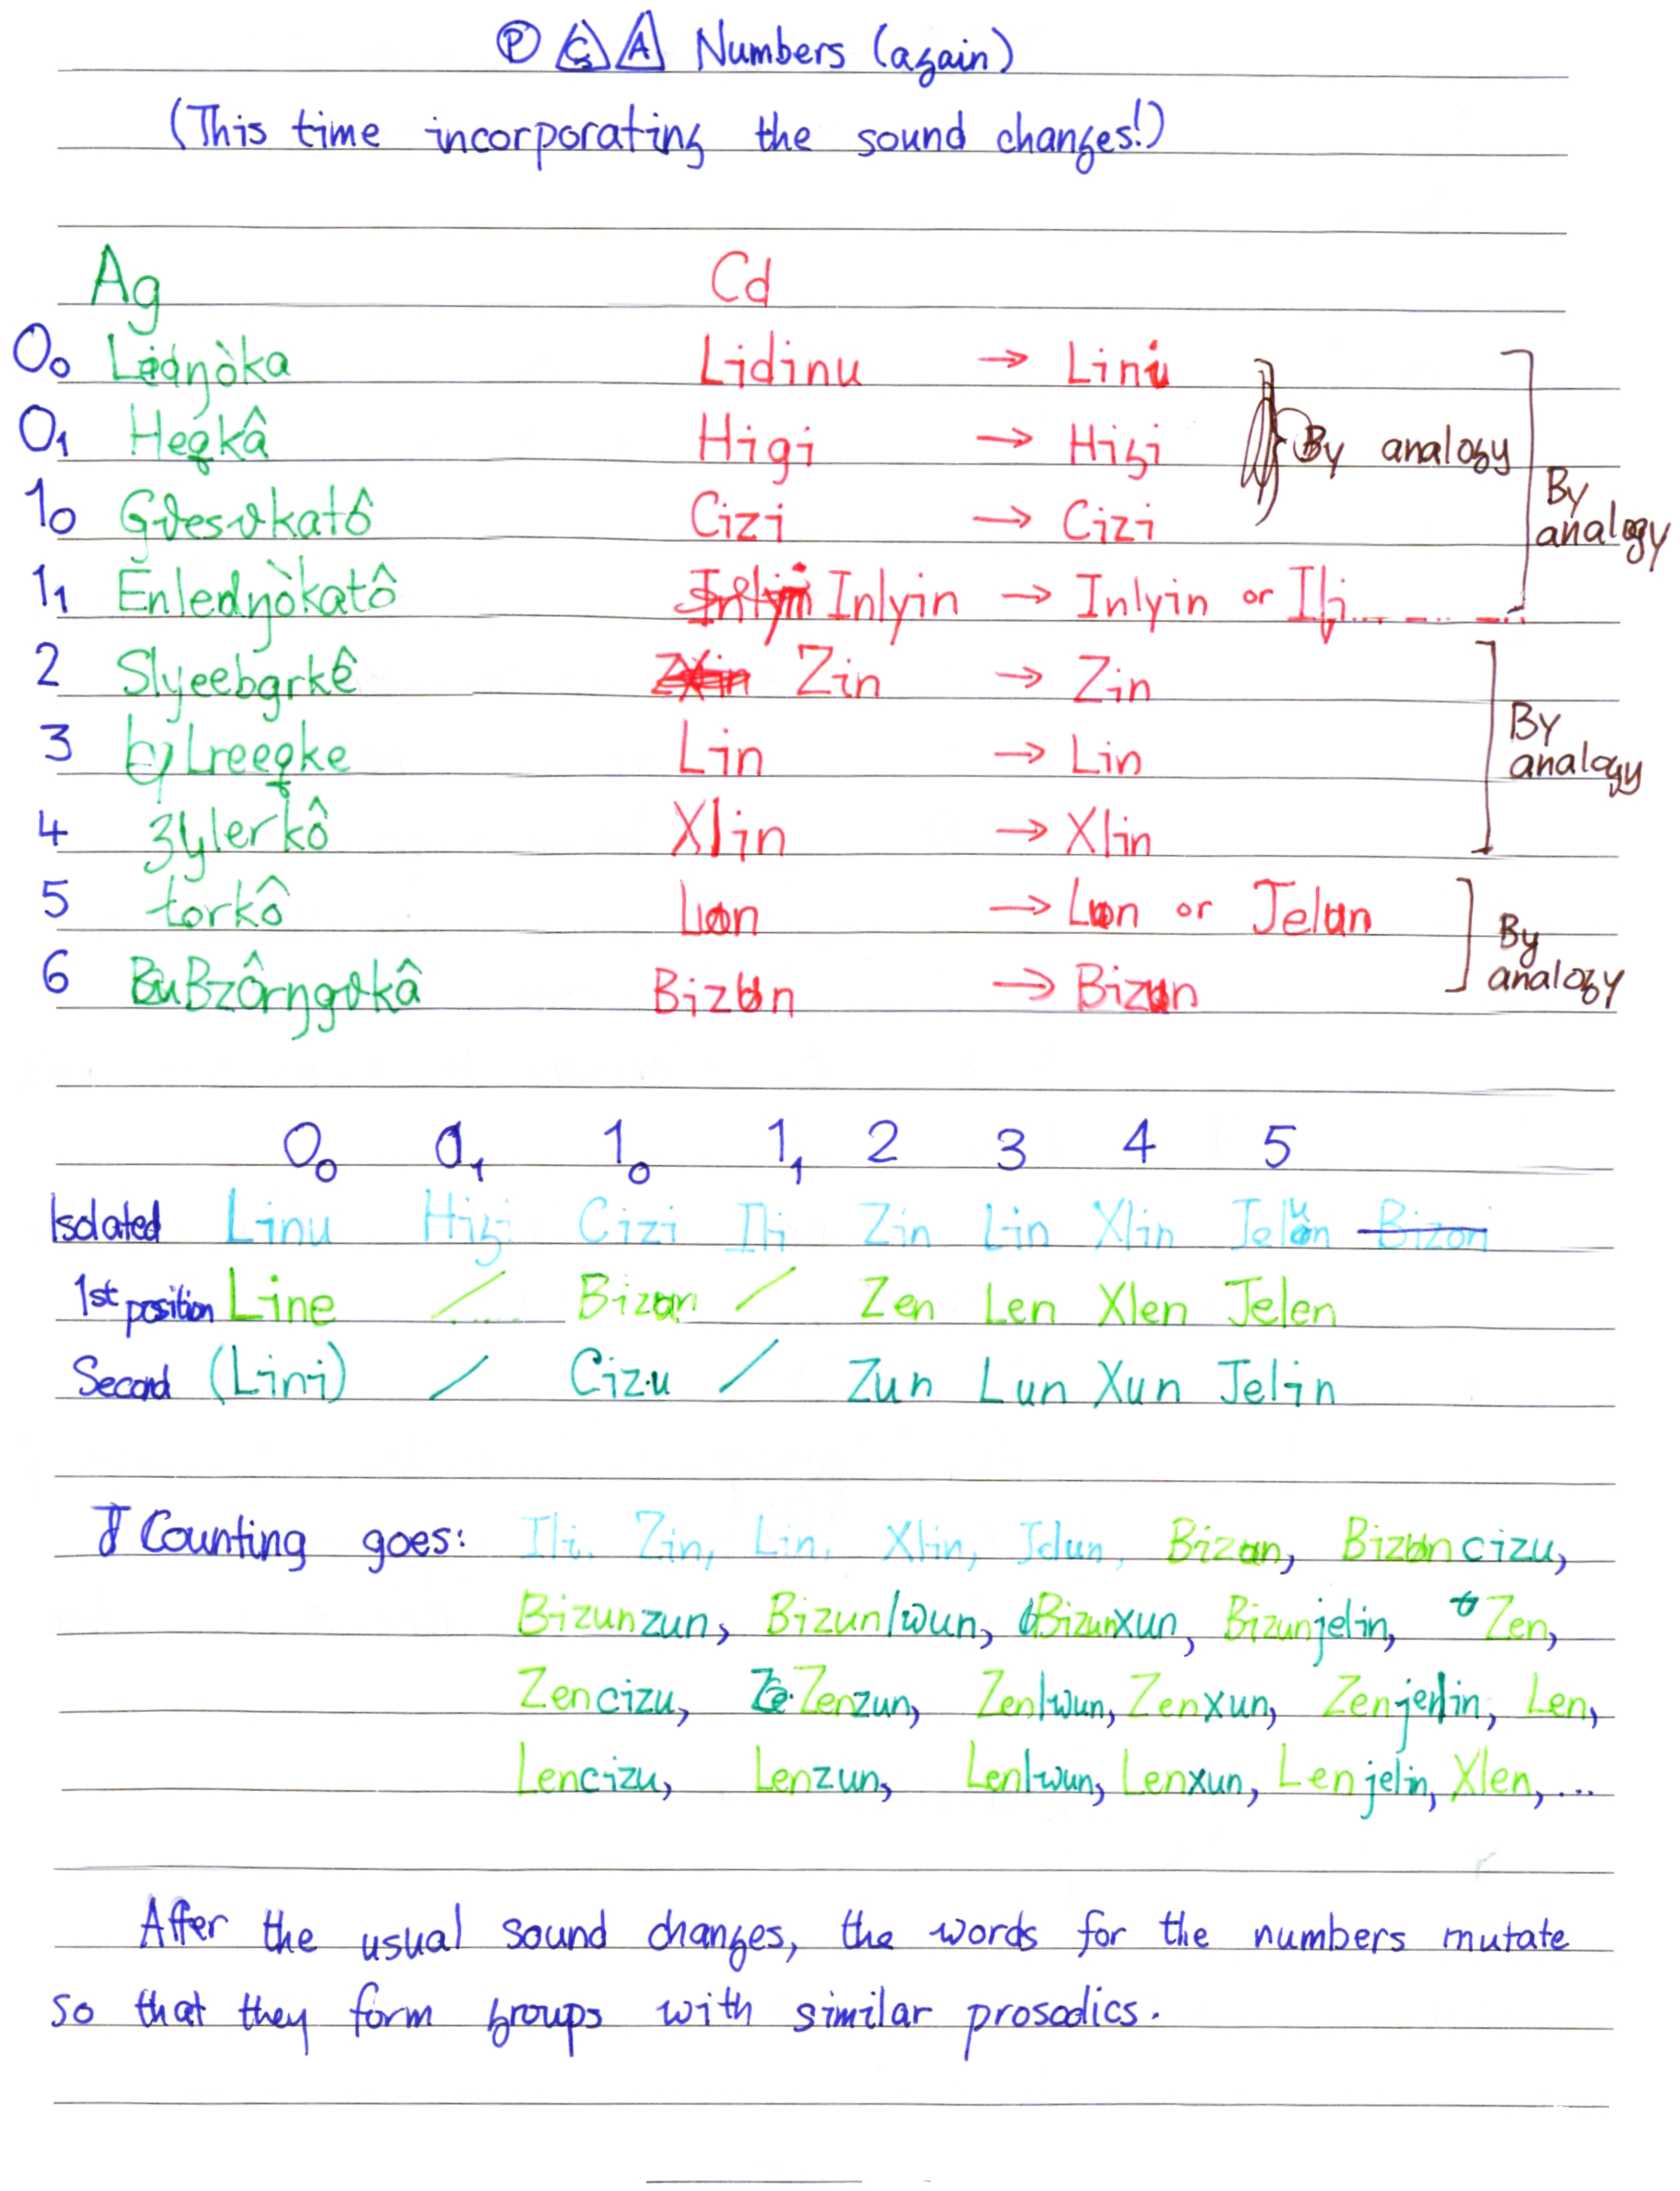 P C A Numbers (again)
(This time incorporating the sound changes!)
Ag Cd
0₀ Lednòka Lidinu → Lini
0₁ Heqkâ Higi → Higi By analogy
1₀ Cizi → Cizi By
analogy
1₁ Ênledŋòkatô Inlyin → Inlyin or Ili
2 Slyeebgrkê Zin → Zin
3 Lreeqke Lin → Lin By
analogy
4 ʒylerkô Xlin → Xlin
5 torkô Lun → Lun or Jelun By
analogy
6 Bizun → Bizun
0₀ 0₁ 1₀ 1₁ 2 3 4 5
Isolated Linu Higi Cizi Ili Zin Lin Xlin Jelun Bizon
1st position Line / Bizun / Zen Len Xlen Jelen
Second (Lini) / Cizu / Zun Lun Xun Jelin
Counting goes: Ili, Zin, Lin, Xlin, Jelun, Bizun, Bizuncizu,
Bizunzun, Bizunlwun, Bizunxun, Bizunjelin, Zen,
Zencizu, Zenzun, Zenlwun, Zenxun, Zenjelin, Len,
Lencizu, Lenzun, Lenlwun, Lenxun, Lenjelin, Xlen, ...
After the usual sound changes, the words for the numbers mutate
so that they form groups with similar prosodics.